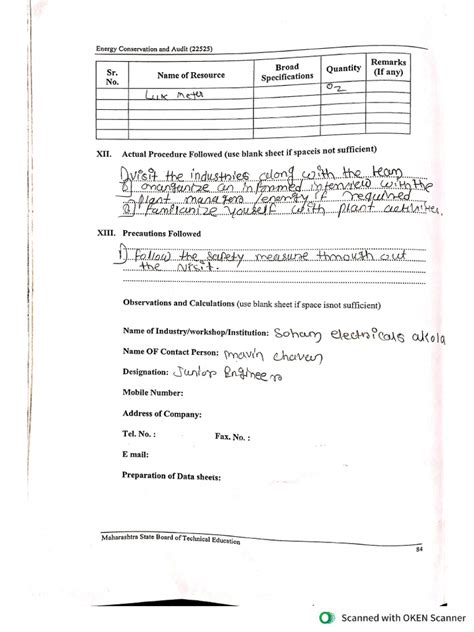 Energy Conservation and Audit (22525)
Sr. No. Name of Resource Broad Specifications Quantity Remarks (If any)
Lux meter 02
XII. Actual Procedure Followed (use blank sheet if spaceis not sufficient)
1) visit the industries along with the team
2) omangunize an informed interview with the
plant managers /energy if required
3) Familiarize yourself with plant activities.
XIII. Precautions Followed
1) Follow the safety measure through out
the visit.
Observations and Calculations (use blank sheet if space isnot sufficient)
Name of Industry/workshop/Institution: Soham electricals akola
Name OF Contact Person: mavin chavan
Designation: Junior Engineer
Mobile Number:
Address of Company:
Tel. No. : Fax. No. :
E mail:
Preparation of Data sheets:
Maharashtra State Board of Technical Education
84
Scanned with OKEN Scanner